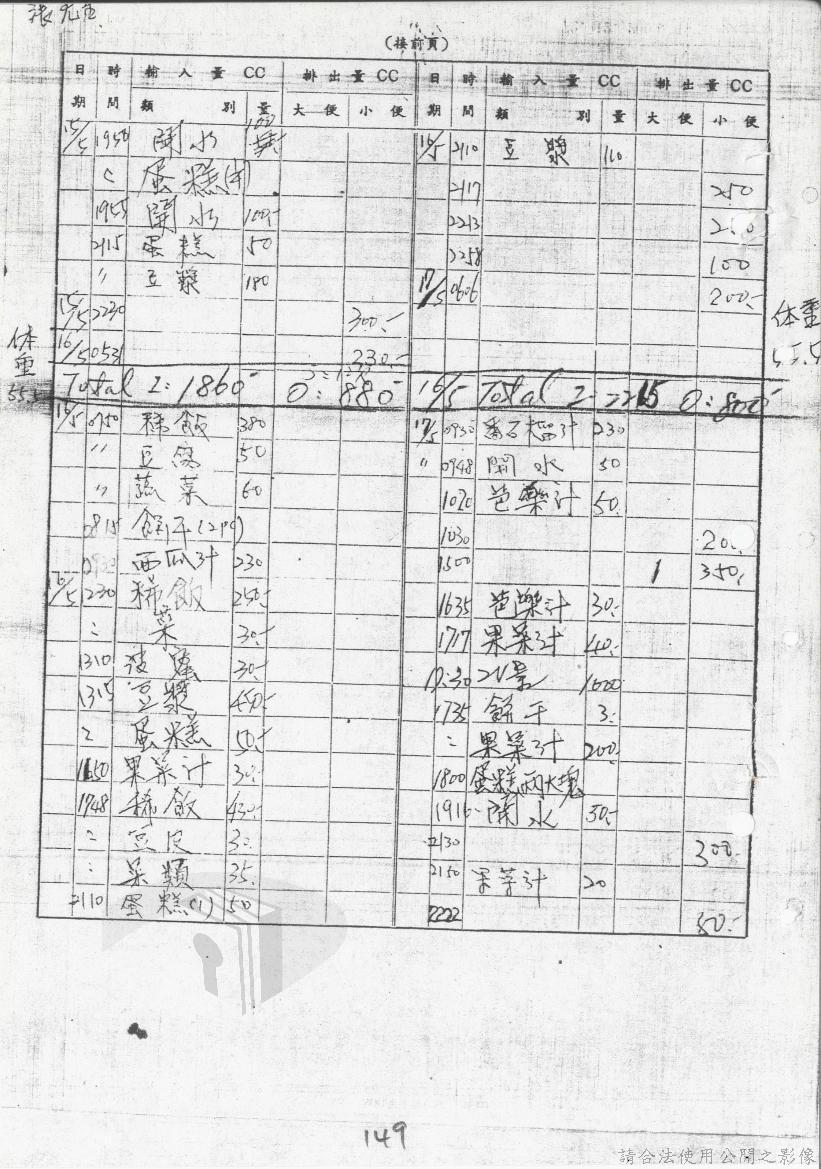 (接前頁)
日期 時間 輸入量CC 類別 量 排出量CC 大便 小便
15/5 1950 開水 100
蛋糕
1955 開水 100.-
2115 蛋糕 50
〃 豆漿 180
15/5 2230 300.-
16/5 0531 330.-
体重
Total I: 1860 O: 880
16/5 0750 稀飯 380
〃 豆腐 50
〃 蔬菜 60
0815 餅干(2pc)
西瓜汁 230
16/5 1230 稀飯 250.-
菜 30.-
1310 30.-
1315 豆漿 450.-
蛋糕 50.-
1650 果菜汁 30.-
1748 稀飯 430.-
豆皮 30.
菜類 35.
2110 蛋糕(1) 50
日期 時間 輸入量CC 類別 量 排出量CC 大便 小便
16/5 2110 豆漿 110
2117 250
2213 250
2258 100
17/5 0606 200.-
体重
55.5
16/5 Total I: 2215 O: 800
17/5 0930 番石榴汁 230
〃 0948 開水 50
1020 芭樂汁 50.
1030 200.
1500 1 350.
1635 芭樂汁 30.-
1717 果菜汁 40.-
17:30 1000
1735 餅干 3.
果菜汁 200.
1800 蛋糕兩大塊
1916 開水 50.-
2130 300.
2150 果菜汁 20
2222 50.-
149
請合法使用公開之影像